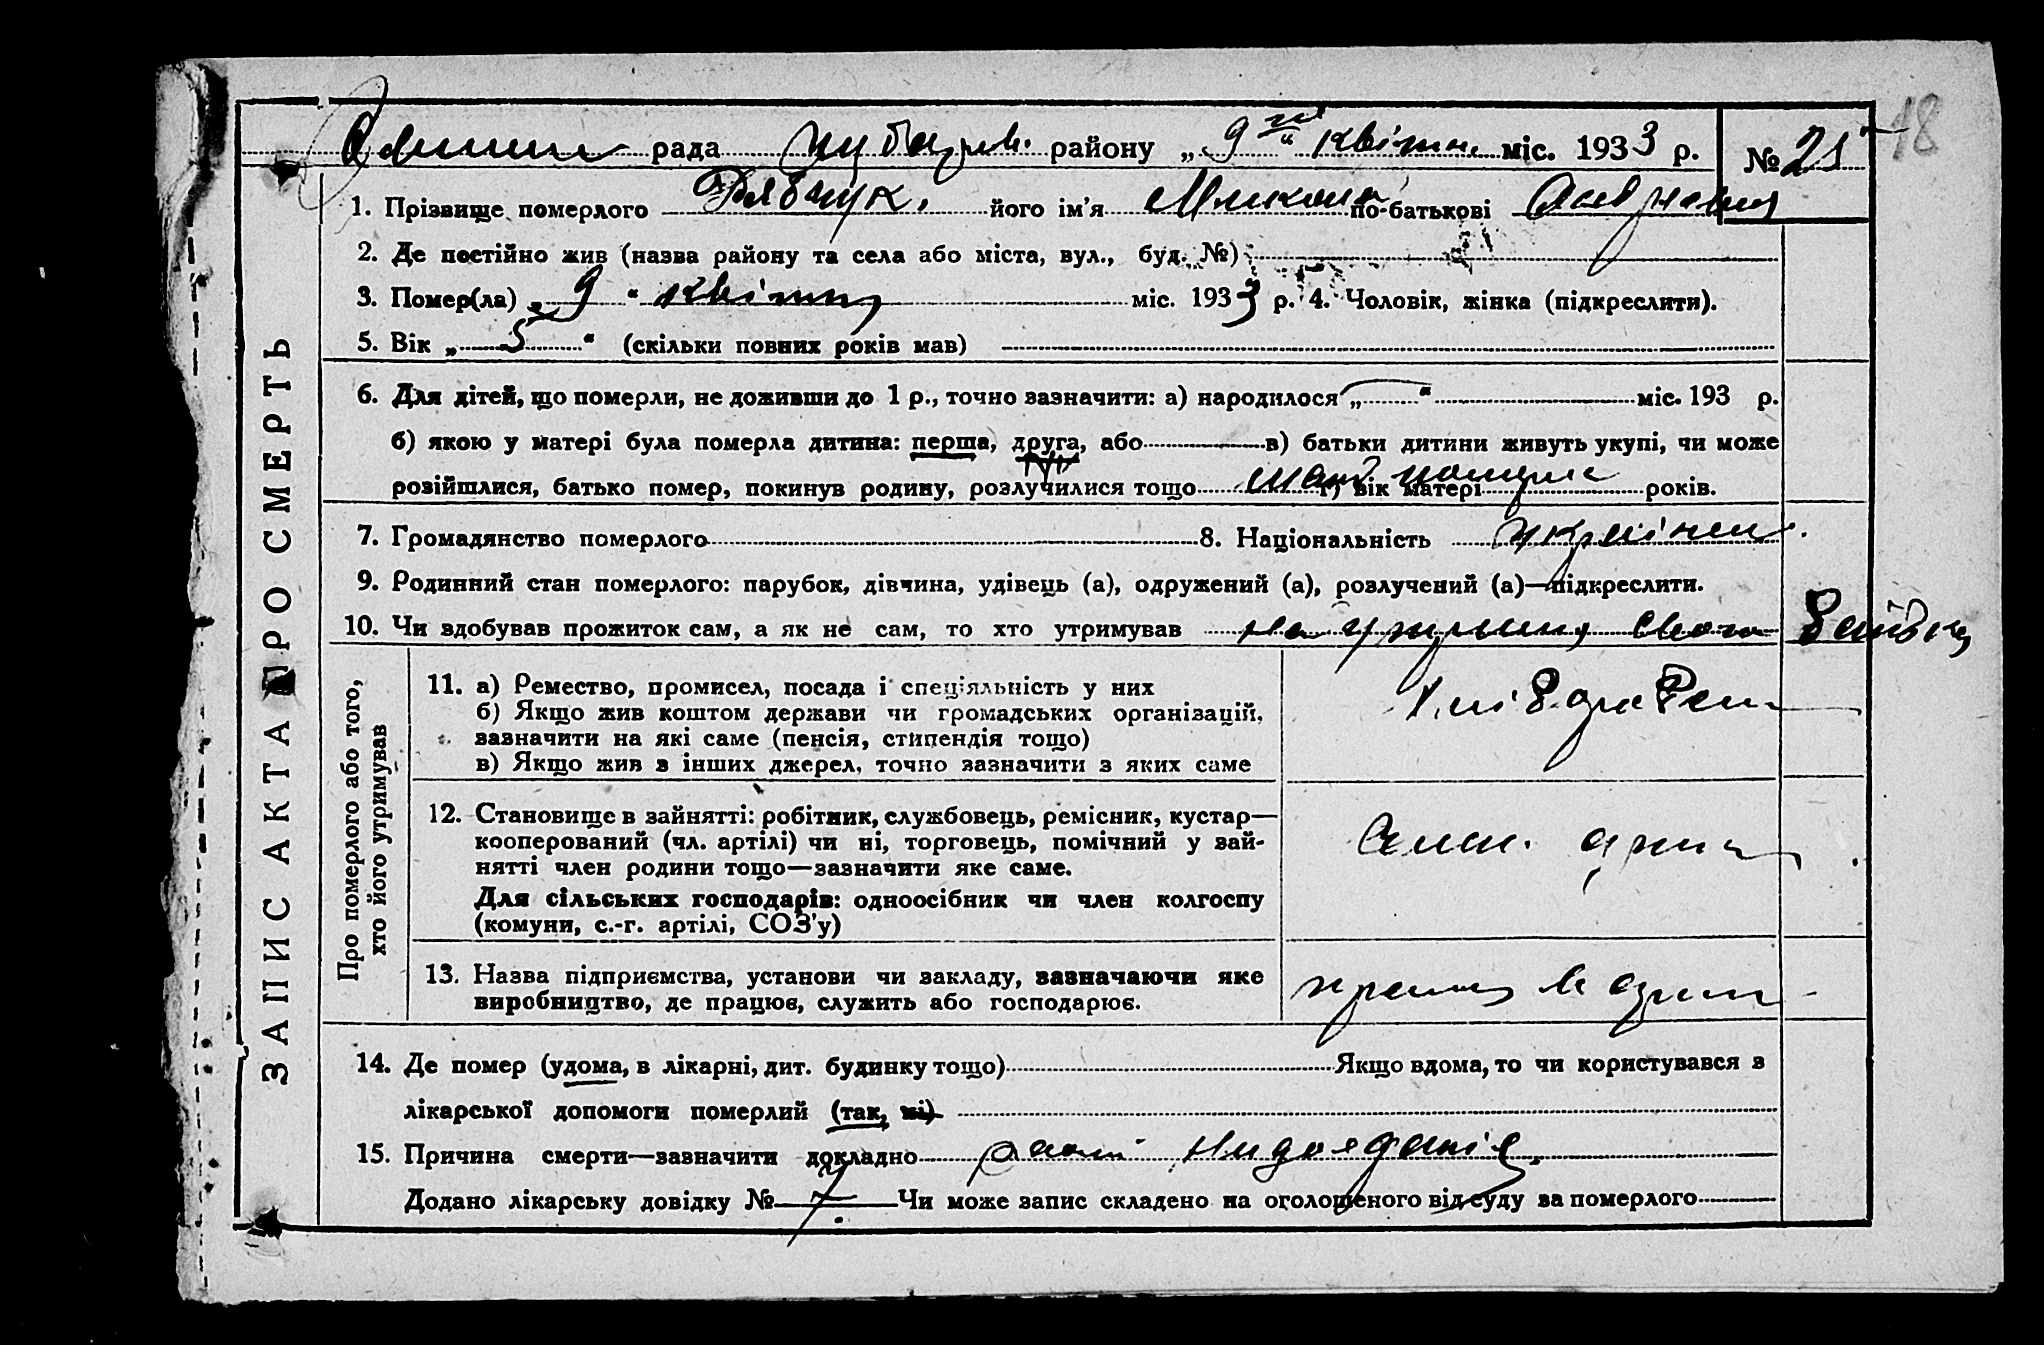 18
рада району „ 9го “ квітн. міс. 1933 р. № 25
1. Прізвище померлого Рябчук. його ім'я Микола по-батькові
2. Де постійно жив (назва району та села або міста, вул., буд. №)
3. Помер(ла) „ 9 “ квітня міс. 1933 р. 4. Чоловік, жінка (підкреслити).
5. Вік „ 5 “ (скільки повних років мав)
6. Для дітей, що померли, не доживши до 1 р., точно зазначити: а) народилося „ “ міс. 193 р.
б) якою у матері була померла дитина: перша, друга, або в) батьки дитини живуть укупі, чи може
розійшлися, батько помер, покинув родину, розлучилися тощо г) вік матері років.
7. Громадянство померлого 8. Національність українец.
9. Родинний стан померлого: парубок, дівчина, удівець (а), одружений (а), розлучений (а)—підкреслити.
10. Чи здобував прожиток сам, а як не сам, то хто утримував на
ЗАПИС АКТА ПРО СМЕРТЬ
Про померлого або того,
хто його утримував
11. а) Ремество, промисел, посада і спеціяльність у них
б) Якщо жив коштом держави чи громадських організацій,
зазначити на які саме (пенсія, стипендія тощо)
в) Якщо жив з інших джерел, точно зазначити з яких саме
12. Становище в зайнятті: робітник, службовець, ремісник, кустар—
кооперований (чл. артілі) чи ні, торговець, помічний у зай-
нятті член родини тощо—зазначити яке саме.
Для сільських господарів: одноосібник чи член колгоспу
(комуни, с.-г. артілі, СОЗ'у)
13. Назва підприємства, установи чи закладу, зазначаючи яке
виробництво, де працює, служить або господарює.
14. Де помер (удома, в лікарні, дит. будинку тощо) Якщо вдома, то чи користувався з
лікарської допомоги померлий (так, ні)
15. Причина смерти—зазначити докладно
Додано лікарську довідку № 7. Чи може запис складено на оголошеного від суду за померлого